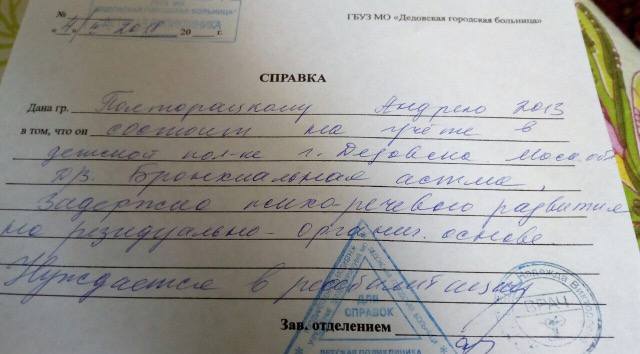 ГБУЗ МО «Дедовская городская больница»
№
2018 20 г.
СПРАВКА
Дана гр. Полторацкому Андрею 2013
в том, что он состоит на учёте в
детской пол-ке г. Дедовска Моск. обл
Д/З. Бронхиальная астма,
Задержка психоречевого развития
на резидуально-органич. основе.
Нуждается в реабилитации
ДЛЯ
СПРАВОК
ДЕТСКАЯ ПОЛИКЛИНИКА
ВРАЧ
Зав. отделением